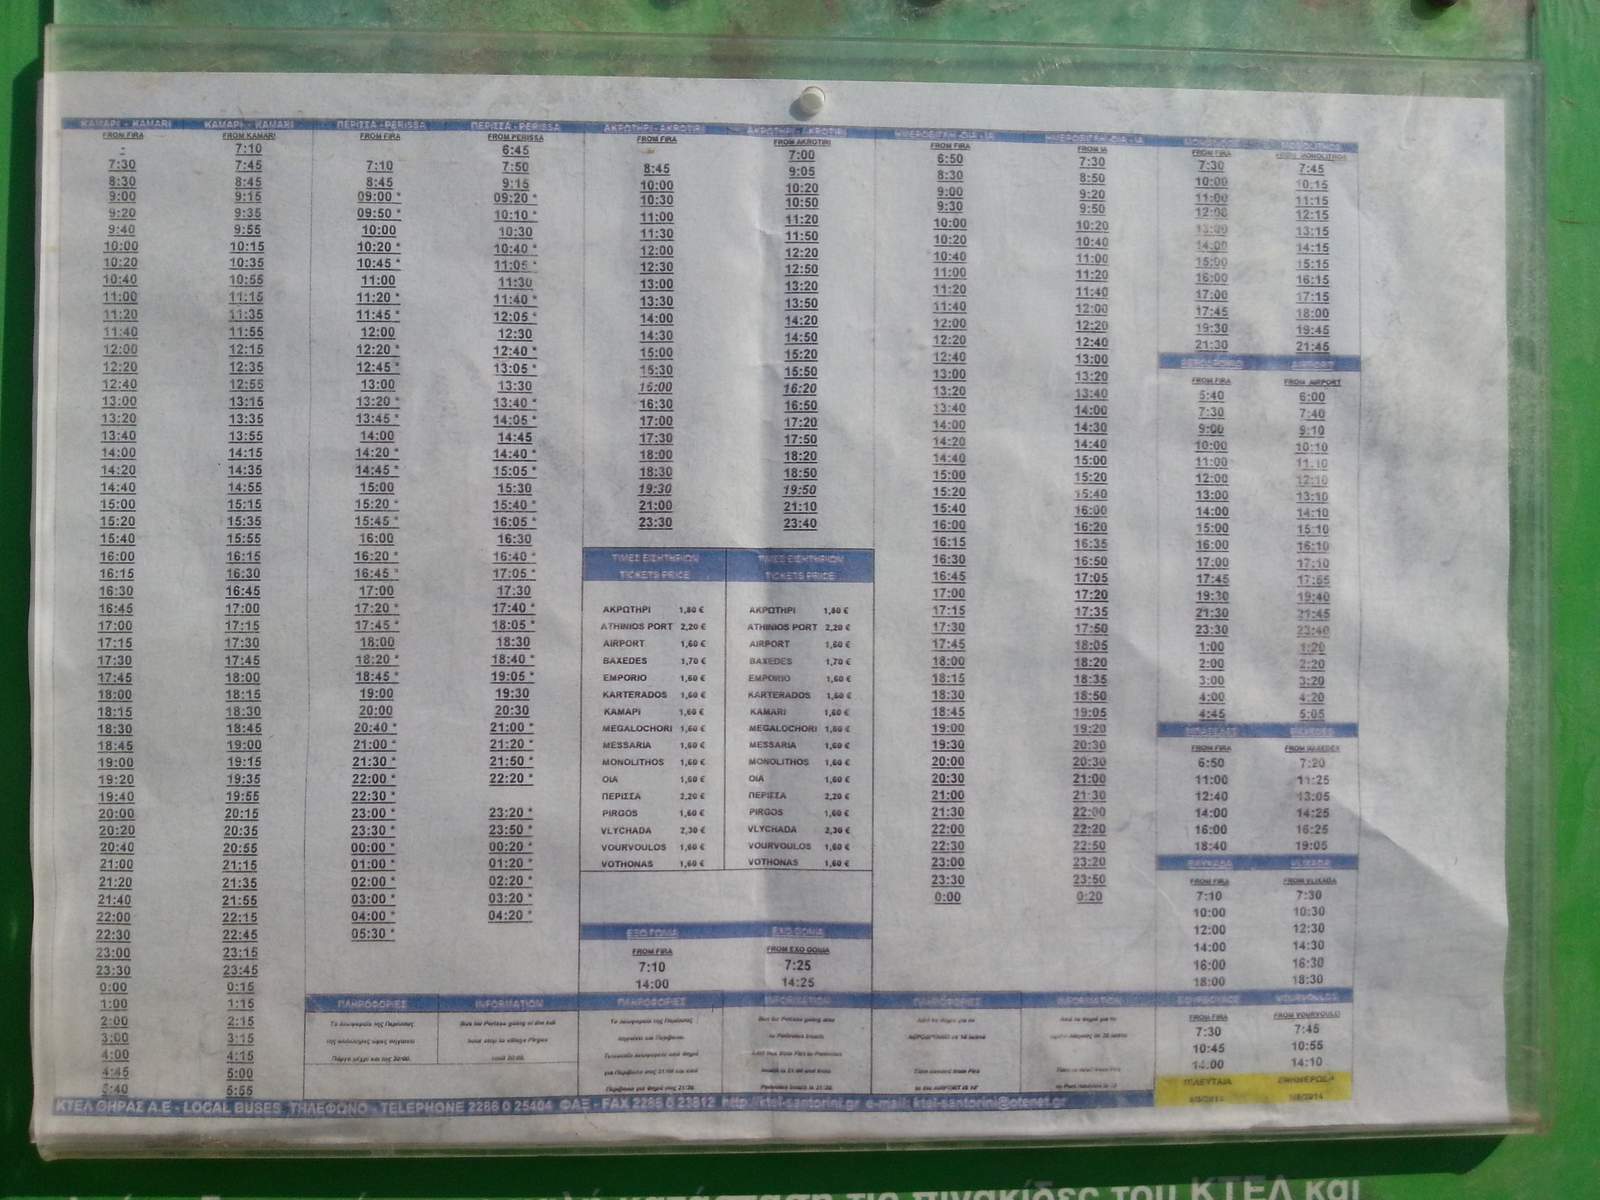 ΚΑΜΑΡΙ - KAMARI ΚΑΜΑΡΙ - KAMARI ΠΕΡΙΣΣΑ - PERISSA ΠΕΡΙΣΣΑ - PERISSA ΑΚΡΩΤΗΡΙ - AKROTIRI ΑΚΡΩΤΗΡΙ - AKROTIRI
FROM FIRA FROM KAMARI FROM FIRA FROM PERISSA FROM FIRA FROM AKROTIRI FROM FIRA FROM IA FROM FIRA FROM MONOLITHOS
- 7:10 6:45 7:00 6:50 7:30 7:30 7:45
7:30 7:45 7:10 7:50 8:45 9:05 8:30 8:50 10:00 10:15
8:30 8:45 8:45 9:15 10:00 10:20 9:00 9:20 11:00 11:15
9:00 9:15 09:00 * 09:20 * 10:30 10:50 9:30 9:50 12:00 12:15
9:20 9:35 09:50 * 10:10 * 11:00 11:20 10:00 10:20 13:00 13:15
9:40 9:55 10:00 10:30 11:30 11:50 10:20 10:40 14:00 14:15
10:00 10:15 10:20 * 10:40 * 12:00 12:20 10:40 11:00 15:00 15:15
10:20 10:35 10:45 * 11:05 * 12:30 12:50 11:00 11:20 16:00 16:15
10:40 10:55 11:00 11:30 13:00 13:20 11:20 11:40 17:00 17:15
11:00 11:15 11:20 * 11:40 * 13:30 13:50 11:40 12:00 17:45 18:00
11:20 11:35 11:45 * 12:05 * 14:00 14:20 12:00 12:20 19:30 19:45
11:40 11:55 12:00 12:30 14:30 14:50 12:20 12:40 21:30 21:45
12:00 12:15 12:20 * 12:40 * 15:00 15:20 12:40 13:00 AIRPORT
12:20 12:35 12:45 * 13:05 * 15:30 15:50 13:00 13:20 FROM FIRA FROM AIRPORT
12:40 12:55 13:00 13:30 16:00 16:20 13:20 13:40 5:40 6:00
13:00 13:15 13:20 * 13:40 * 16:30 16:50 13:40 14:00 7:30 7:40
13:20 13:35 13:45 * 14:05 * 17:00 17:20 14:00 14:30 9:00 9:10
13:40 13:55 14:00 14:45 17:30 17:50 14:20 14:40 10:00 10:10
14:00 14:15 14:20 * 14:40 * 18:00 18:20 14:40 15:00 11:00 11:10
14:20 14:35 14:45 * 15:05 * 18:30 18:50 15:00 15:20 12:00 12:10
14:40 14:55 15:00 15:30 19:30 19:50 15:20 15:40 13:00 13:10
15:00 15:15 15:20 * 15:40 * 21:00 21:10 15:40 16:00 14:00 14:10
15:20 15:35 15:45 * 16:05 * 23:30 23:40 16:00 16:20 15:00 15:10
15:40 15:55 16:00 16:30 16:15 16:35 16:00 16:10
16:00 16:15 16:20 * 16:40 * ΤΙΜΕΣ ΕΙΣΗΤΗΡΙΩΝ ΤΙΜΕΣ ΕΙΣΗΤΗΡΙΩΝ 16:30 16:50 17:00 17:10
16:15 16:30 16:45 * 17:05 * TICKETS PRICE TICKETS PRICE 16:45 17:05 17:45 17:55
16:30 16:45 17:00 17:30 17:00 17:20 19:30 19:40
16:45 17:00 17:20 * 17:40 * ΑΚΡΩΤΗΡΙ 1,80 € ΑΚΡΩΤΗΡΙ 1,80 € 17:15 17:35 21:30 21:45
17:00 17:15 17:45 * 18:05 * ATHINIOS PORT 2,20 € ATHINIOS PORT 2,20 € 17:30 17:50 23:30 23:40
17:15 17:30 18:00 18:30 AIRPORT 1,60 € AIRPORT 1,60 € 17:45 18:05 1:00 1:20
17:30 17:45 18:20 * 18:40 * BAXEDES 1,70 € BAXEDES 1,70 € 18:00 18:20 2:00 2:20
17:45 18:00 18:45 * 19:05 * EMPORIO 1,60 € EMPORIO 1,60 € 18:15 18:35 3:00 3:20
18:00 18:15 19:00 19:30 KARTERADOS 1,60 € KARTERADOS 1,60 € 18:30 18:50 4:00 4:20
18:15 18:30 20:00 20:30 ΚΑΜΑΡΙ 1,60 € KAMARI 1,60 € 18:45 19:05 4:45 5:05
18:30 18:45 20:40 * 21:00 * MEGALOCHORI 1,60 € MEGALOCHORI 1,60 € 19:00 19:20
18:45 19:00 21:00 * 21:20 * MESSARIA 1,60 € MESSARIA 1,60 € 19:30 20:30 FROM FIRA FROM BAXEDES
19:00 19:15 21:30 * 21:50 * MONOLITHOS 1,60 € MONOLITHOS 1,60 € 20:00 20:30 6:50 7:20
19:20 19:35 22:00 * 22:20 * OIA 1,60 € OIA 1,60 € 20:30 21:00 11:00 11:25
19:40 19:55 22:30 * ΠΕΡΙΣΣΑ 2,20 € ΠΕΡΙΣΣΑ 2,20 € 21:00 21:30 12:40 13:05
20:00 20:15 23:00 * 23:20 * PIRGOS 1,60 € PIRGOS 1,60 € 21:30 22:00 14:00 14:25
20:20 20:35 23:30 * 23:50 * VLYCHADA 2,30 € VLYCHADA 2,30 € 22:00 22:20 16:00 16:25
20:40 20:55 00:00 * 00:20 * VOURVOULOS 1,60 € VOURVOULOS 1,60 € 22:30 22:50 18:40 19:05
21:00 21:15 01:00 * 01:20 * VOTHONAS 1,60 € VOTHONAS 1,60 € 23:00 23:20
21:20 21:35 02:00 * 02:20 * 23:30 23:50 FROM FIRA FROM VLIXADA
21:40 21:55 03:00 * 03:20 * 0:00 0:20 7:10 7:30
22:00 22:15 04:00 * 04:20 * 10:00 10:30
22:30 22:45 05:30 * ΕΞΩ ΓΩΝΙΑ EXO GONIA 12:00 12:30
23:00 23:15 FROM FIRA FROM EXO GONIA 14:00 14:30
23:30 23:45 7:10 7:25 16:00 16:30
0:00 0:15 14:00 14:25 18:00 18:30
1:00 1:15 ΠΛΗΡΟΦΟΡΙΕΣ INFORMATION ΠΛΗΡΟΦΟΡΙΕΣ INFORMATION ΠΛΗΡΟΦΟΡΙΕΣ INFORMATION VOURVOULOS
2:00 2:15 FROM FIRA FROM VOURVOULO
3:00 3:15 7:30 7:45
4:00 4:15 10:45 10:55
4:45 5:00 14:00 14:10
5:40 5:55
ΚΤΕΛ ΘΗΡΑΣ Α.Ε - LOCAL BUSES ΤΗΛΕΦΩΝΟ - TELEPHONE 2286 0 25404 ΦΑΞ - FAX 2286 0 23812 http://ktel-santorini.gr e-mail: ktel-santorini@otenet.gr
κατάσταση τις πινακίδες του ΚΤΕΛ και